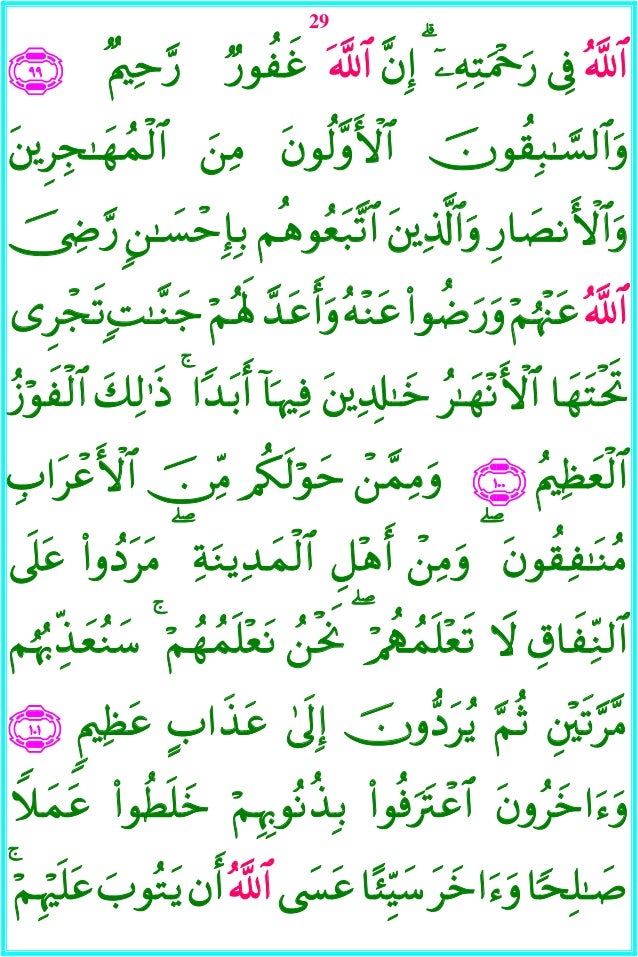 29
ٱللَّهُ فِى رَحْمَتِهِۦٓ ۗ إِنَّ ٱللَّهَ غَفُورٌ رَّحِيمٌ ٩٩
وَٱلسَّـٰبِقُونَ ٱلْأَوَّلُونَ مِنَ ٱلْمُهَـٰجِرِينَ
وَٱلْأَنصَارِ وَٱلَّذِينَ ٱتَّبَعُوهُم بِإِحْسَـٰنٍ رَّضِىَ
ٱللَّهُ عَنْهُمْ وَرَضُوا۟ عَنْهُ وَأَعَدَّ لَهُمْ جَنَّـٰتٍ تَجْرِى
تَحْتَهَا ٱلْأَنْهَـٰرُ خَـٰلِدِينَ فِيهَآ أَبَدًا ۚ ذَٰلِكَ ٱلْفَوْزُ
ٱلْعَظِيمُ ١٠٠ وَمِمَّنْ حَوْلَكُم مِّنَ ٱلْأَعْرَابِ
مُنَـٰفِقُونَ ۖ وَمِنْ أَهْلِ ٱلْمَدِينَةِ ۖ مَرَدُوا۟ عَلَى
ٱلنِّفَاقِ لَا تَعْلَمُهُمْ ۖ نَحْنُ نَعْلَمُهُمْ ۚ سَنُعَذِّبُهُم
مَّرَّتَيْنِ ثُمَّ يُرَدُّونَ إِلَىٰ عَذَابٍ عَظِيمٍ ١٠١
وَءَاخَرُونَ ٱعْتَرَفُوا۟ بِذُنُوبِهِمْ خَلَطُوا۟ عَمَلًا
صَـٰلِحًا وَءَاخَرَ سَيِّئًا عَسَى ٱللَّهُ أَن يَتُوبَ عَلَيْهِمْ ۚ